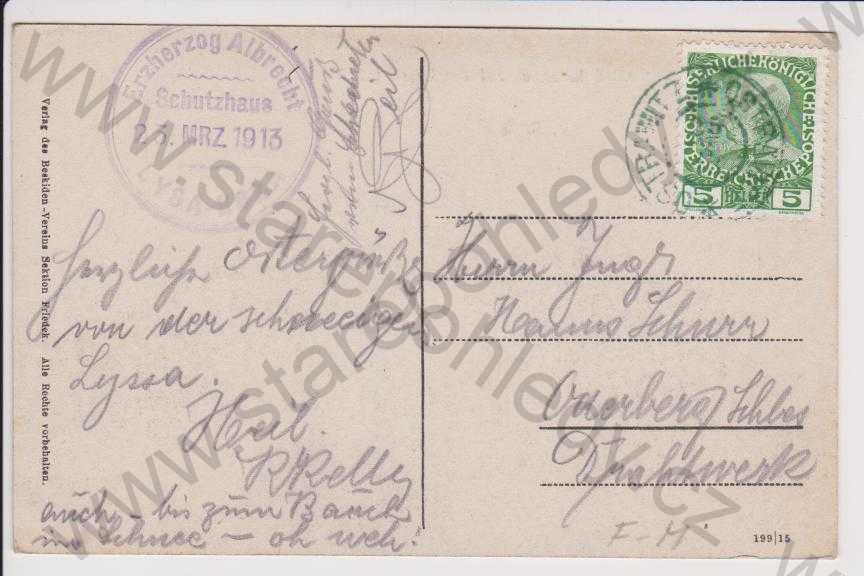 Erzherzog Albrecht
Schutzhaus
23. MRZ. 1913
LYSA
Verlag des Beskiden-Vereins Sektion Friedek. Alle Rechte vorbehalten.
Heil
Herzliche Ostergrüße
von der schneeigen
Lyssa.
Heil.
RKelly
auch – bis zum Bauch
im Schnee – oh weh.
KAISERLICHE KÖNIGLICHE
ÖSTERREICHISCHE POST
5 5
Herrn Ingr
Hanns Schurr
Oderberg Schles
Drahtwerk
F-M
199|15
www.starepohledy.cz